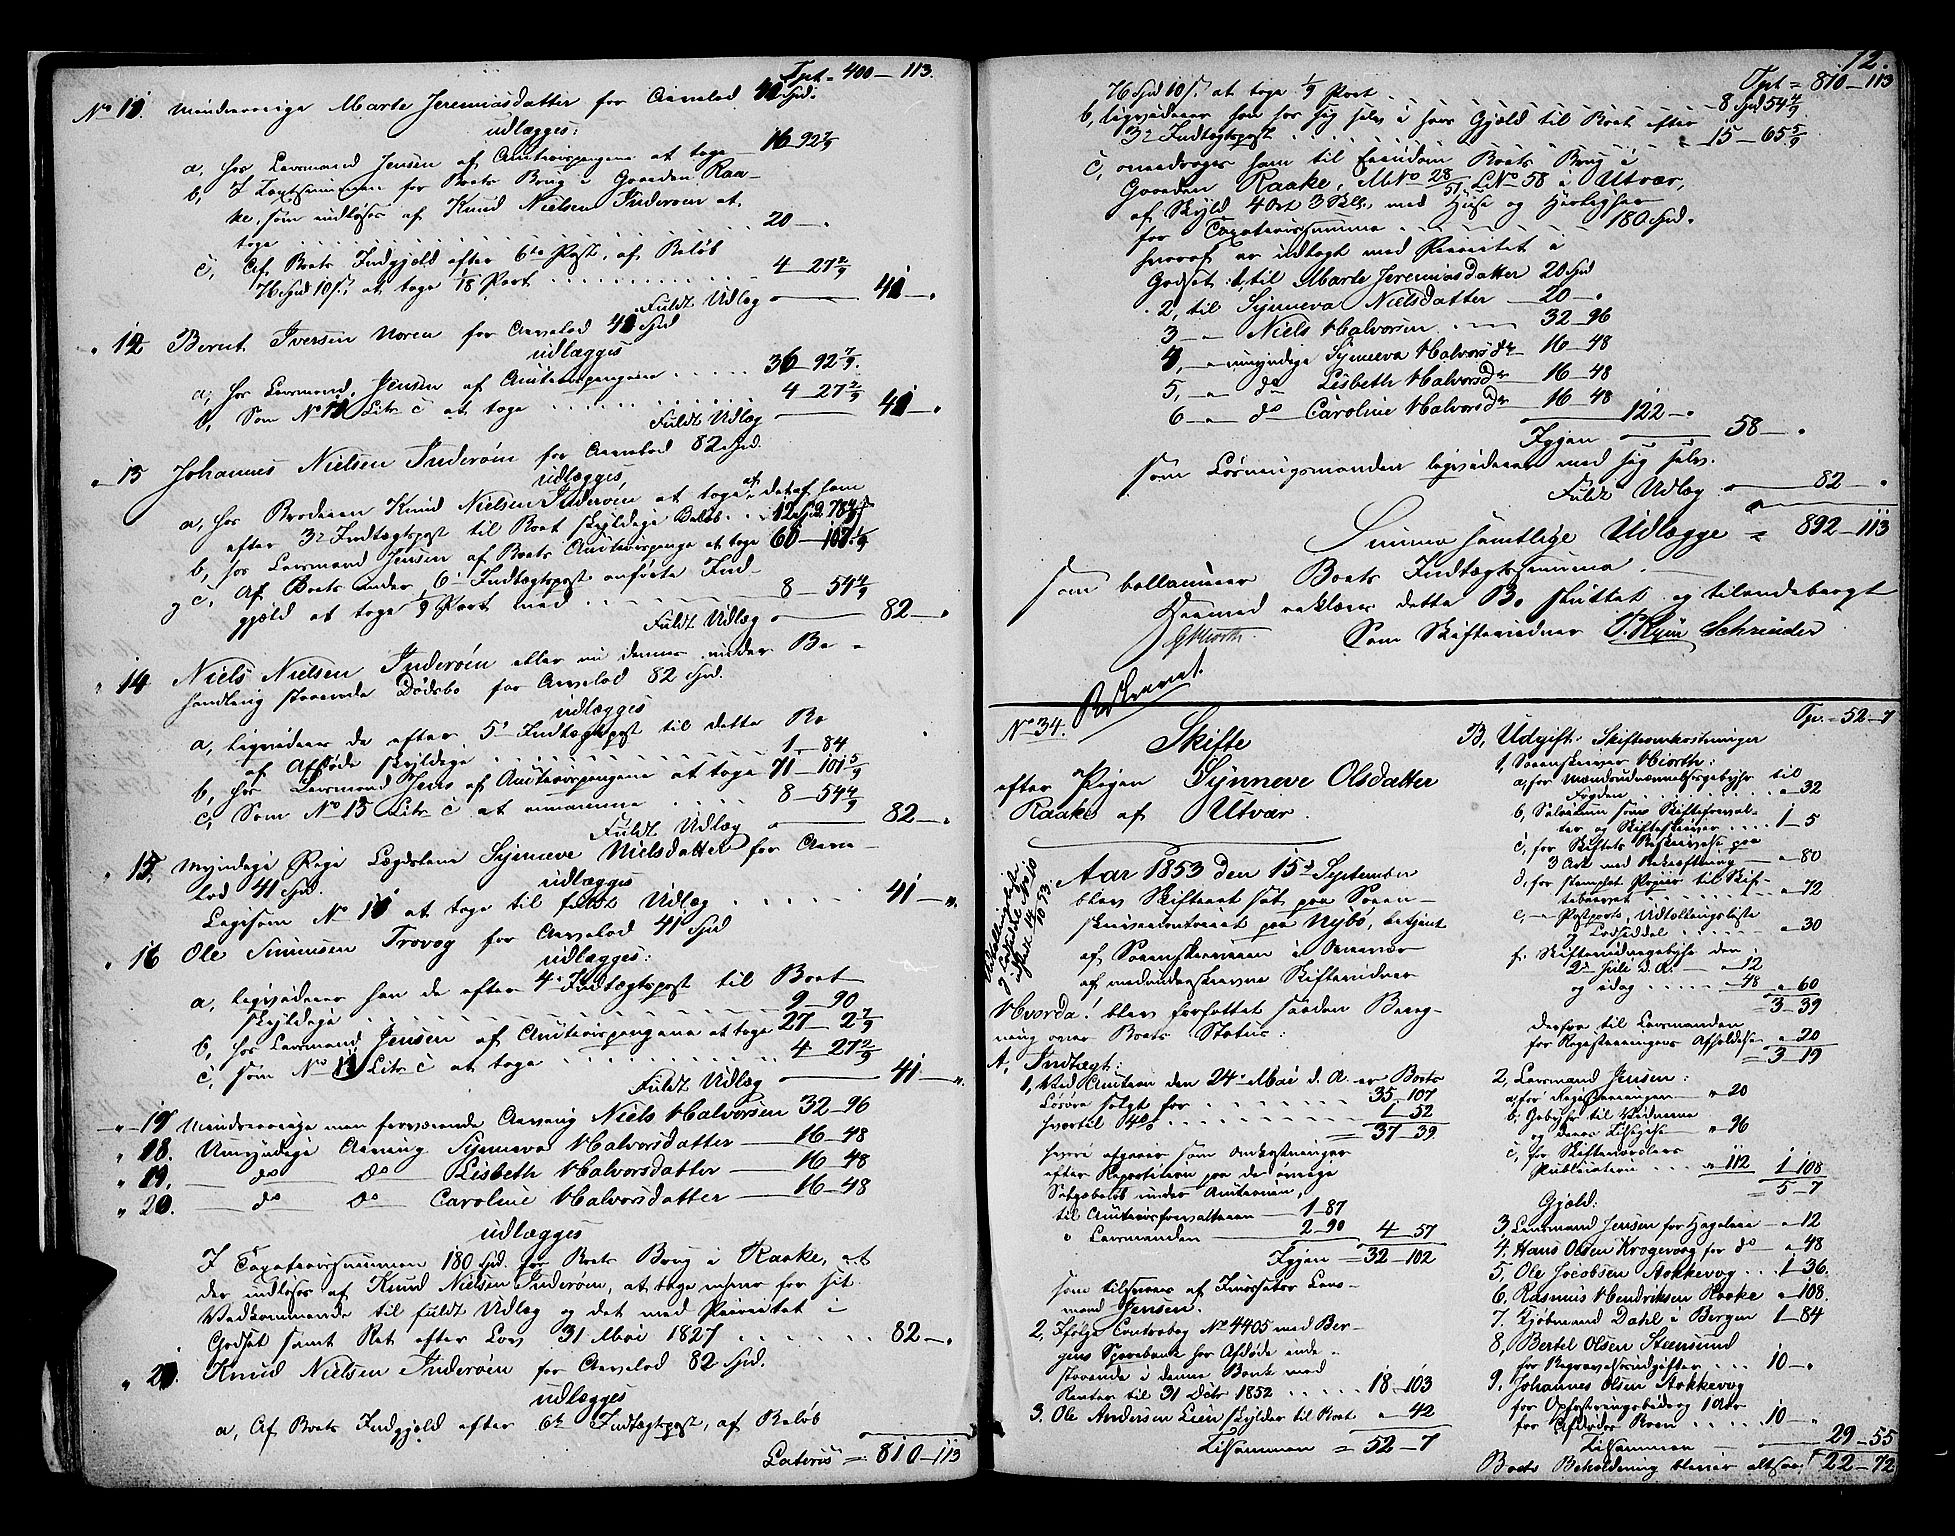 Tpt = 400 — 113.
No 11. Mindreaarige Marte Jeremiasdatter for Arvelod 41 Spd.
udlægges:
a, hos Lensmand Jensen af Auctionspengene at tage — 16–92 7/9
b, I Taxtsummen for Boets Brug i Gaarden Raa–
ke, som indløses af Knud Nielsen Inderøen at
tage . . . 20 — "
c, Af Boets Indgjæld efter 6te Post, af Beløb
76 Spd 10 s. at tage 1/18 Part . . . 4 — 27 2/9
Fuldt Udlæg — 41 — "
" 12 Bernt Iversen Noren for Arvelod 41 Spd
udlægges
a, hos Lensmand Jensen af Auctionspengene . . . 36 — 92 7/9.
b, Som No 11 Litr. c at tage . . . 4 — 27 2/9
Fuldt Udlæg — 41 — "
" 13 Johannes Nielsen Inderøen for Arvelod 82 Spd.
udlægges,
a, hos Broderen Knud Nielsen Inderøen at tage af det af ham
efter 3die Indtægtspost til Boet skyldige Beløb . . 12 Spd. 78 4/9
b, hos Lensmand Jensen af Boets Auctionspenge at tage 60 — 107 1/9
og c, Af Boets under 6te Indtægtspost anførte Ind–
gjæld at tage 1/9 Part med . . . 8 — 54 4/9
Fuldt Udlæg — 82 — "
" 14 Niels Nielsen Inderøen eller nu dennes under Be–
handling staaende Dødsbo for Arvelod 82 Spd.
udlægges
a, liqviderer de efter 5te Indtægtspost til dette Bo
af Afdøde skyldige . . . 1 — 84
b, hos Lensmand Jens af Auctionspengene at tage 71 — 101 5/9
c, Som No 13 Litr. c at annamme . . . 8 — 54 4/9
Fuldt Udlæg — 82 — "
" 15. Myndige Pige Lægdslem Synneve Nielsdatter for Arve–
lod 41 Spd.
udlægges
Ligesom No 11 at tage til fuldt Udlæg . . . 41 — "
" 16 Ole Simensen Trovaag for Arvelod 41 Spd
udlægges:
a, liqviderer han de efter 4de Indtægtspost til Boet
skyldige . . . 9 — 90
b, hos Lensmand Jensen af Auctionspengene at tage 27 — 2 7/9
c, som No 11 Litr. c at tage . . . 4 — 27 2/9
Fuldt Udlæg — 41 — "
" 17 Mindreaarige men Arving Niels Halvorsen 32–96
" 18. Umyndige Arving Synneva Halvorsdatter — 16–48
" 19. — do — do — Lisbeth Halvorsdatter — 16–48
" 20. — do — do — Caroline Halvorsdatter — 16–48
udlægges
I Taxationssummen 180 Spd. for Boets Brug i Raake, at
der indløses af Knud Nielsen Inderøen, at tage enhver for sit
Vedkommende til fuldt Udlæg og det med Prioritet i
Godset samt Ret efter Lov 31 Mai 1827 . . . 82 — "
" 21. Knud Nielsen Inderøen for Arvelod 82 Spd.
udlægges
a, Af Boets Indgjæld efter 6te Indtægtspost, af Beløb
Lateris = 810 — 113
12.
Tpt = 810 — 113
76 Spd 10 s. at tage 1/9 Part . . . 8 Spd 54 4/9
b, liqviderer han hos sig selv i hans Gjæld til Boet efter
3die Indtægtspost . . . 15 — 65 5/9
c, overdrages ham til Eiendom Boets Brug i
Gaarden Raake, M.No 28/51 L.No 58 i Utvær,
af Skyld 4 Ort 3 Skl. med Huse og Herligheder
for Taxationssumma . . . 180 Spd.
hvoraf er udlagt med Prioritet i
Godset: 1, til Marte Jeremiasdatter 20 Spd
2, til Synneva Nielsdatter — 20 — "
3 — " Niels Halvorsen . . . 32 — 96
4, — " umyndige Synneva Halvorsdr — 16 — 48
5, — " do Lisbeth Halvorsdr — 16 — 48
6 — " do — Caroline Halvorsdr 16 — 48
122 — "
Igjen — 58 — "
som Løsningsmanden liqviderer med sig selv.
Fuldt Udlæg — 82 — "
Summa samtlige Udlægge = 892 — 113
som ballancerer Boets Indtægtssumma. —
Hermed erklæres dette Bo sluttet og tilendebragt
GHiorth. Som Skiftevidner Schreuder
No 34.
Skifte
efter Pigen Synneve Olsdatter
Raake af Utvær.
Aar 1853 den 15de September
blev Skifteret sat paa Soren–
skrivercontoiret paa Nybø, betjent
af Sorenskriveren i Overvær
af medunderskrevne Skiftevidner
Hvorda! blev forfattet saadan Bereg–
ning over Boets Status:
A, Indtægt:
1, Ved Auction den 24de Mai d. A. er Boets
Løsøre solgt for . . . 35 — 107
hvortil 4% . . . 1 — 52
= 37 — 39
hvori afgaaer som Omkostninger
efter Repartition paa de øvrige
Salgsbeløb under Auctionen,
til Auctionsforvalteren — 1–87
" Lensmanden — 2–90 4 — 57
Igjen = 32 — 102
som tilsvares af Incassator Lens–
mand Jensen.
2, Ifølge Contrabog No 4405 med Ber–
gens Sparebank har Afdøde inde–
staaende i denne Bank med
Renter til 31 Decbr 1852 . . . 18 — 103
3. Ole Andersen Lien skylder til Boet " — 42
Tilsammen = 52 — 7
Tpt. = 52 — 7
B, Udgift: Skifteomkostninger
1, Sorenskriver Hiorth:
a, for Mændsudnævnelsesgebyhr til
Fogden . . . " — 32
b, Salarium som Skifteforval–
ter og Skifteskriver . . . 1 — 5
c, for Skiftets Beskrivelse paa
3 Ark med — " — 80
d, for stemplet Papiir til Skif–
tebrevet . . . " — 72
e, — Postporto, Udlodningsliste
og Lodseddel . . . " — 30
f. Skiftevidnegebyhr den
2den Juli d. A. — " — 12
og idag . . . — 48 " — 60
= 3 — 39
derfra til Lensmanden
for Registreringens Afholdelse " — 20
= 3 — 19
2, Lensmand Jensen:
a, for Registreringen — " 20
b, Gebyhr til Vidnerne
og deres Tilsigelse — " 96
c, for Skiftevarslers
Publication . . . " 112 1 — 108
= 5 — 7
Gjæld:
3, Lensmand Jensen for — " — 12
4. Hans Olsen Krogevaag for do — " 48
5, Ole Jacobsen Stokkevog . . 1 — 36.
6. Rasmus Hendriksen Raake " — 108.
7. Kjøbmand Dahl i Bergen 1 — 84
8, Bertel Olsen Steensund
for Begravelsesudgifter . . . 10 — "
9, Johannes Olsen Stokkevog
for Opfostringsbidrag 1 Aar
for Afdødes Barn . . . 10 — "
Tilsammen — 29 — 55
Boets Beholdning bliver altsaa 22 — 72